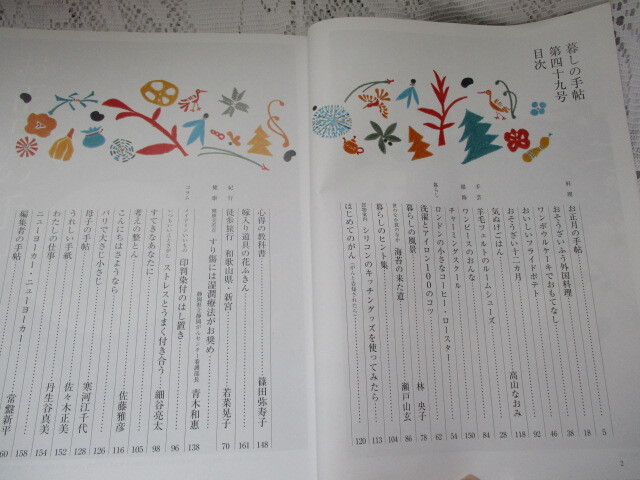 暮しの手帖
第四十九号
目次
料理
お正月の手帖 5
おそうざいふう外国料理 18
ワンボウルケーキでおもてなし 38
おいしいフライドポテト 46
おそうざい十二カ月 92
気ぬけごはん 高山なおみ 118
手芸
羊毛フェルトのルームシューズ 28
服飾
ワンピースのおんな 84
チャーミングスクール 150
暮らし
ロンドンの小さなコーヒー・ロースター 54
洗濯とアイロン100のコツ 62
暮らしの風景 林 央子 78
海苔の来た道 瀬戸山玄 86
暮らしのヒント集 104
シリコンのキッチングッズを使ってみたら 113
はじめてのがん 120
心得の教科書 篠田弥寿子 148
嫁入り道具の花ふきん 161
紀行
徒歩旅行 和歌山県・新宮 若菜晃子 70
健康
すり傷には湿潤療法がお奨め
青木和恵 138
コラム
印判染付のはし置き 96
ストレスとうまく付き合う 細谷亮太 98
すてきなあなたに 105
考えの整とん 佐藤雅彦 116
こんにちはさようなら 126
パリで大さじ小さじ 寒河江千代 128
母子の手帖 佐々木正美 152
うれしい手紙 丹生谷真美 154
わたしの仕事 158
ニューヨーカー・ニューヨーカー 常盤新平 160
編集者の手帖
2